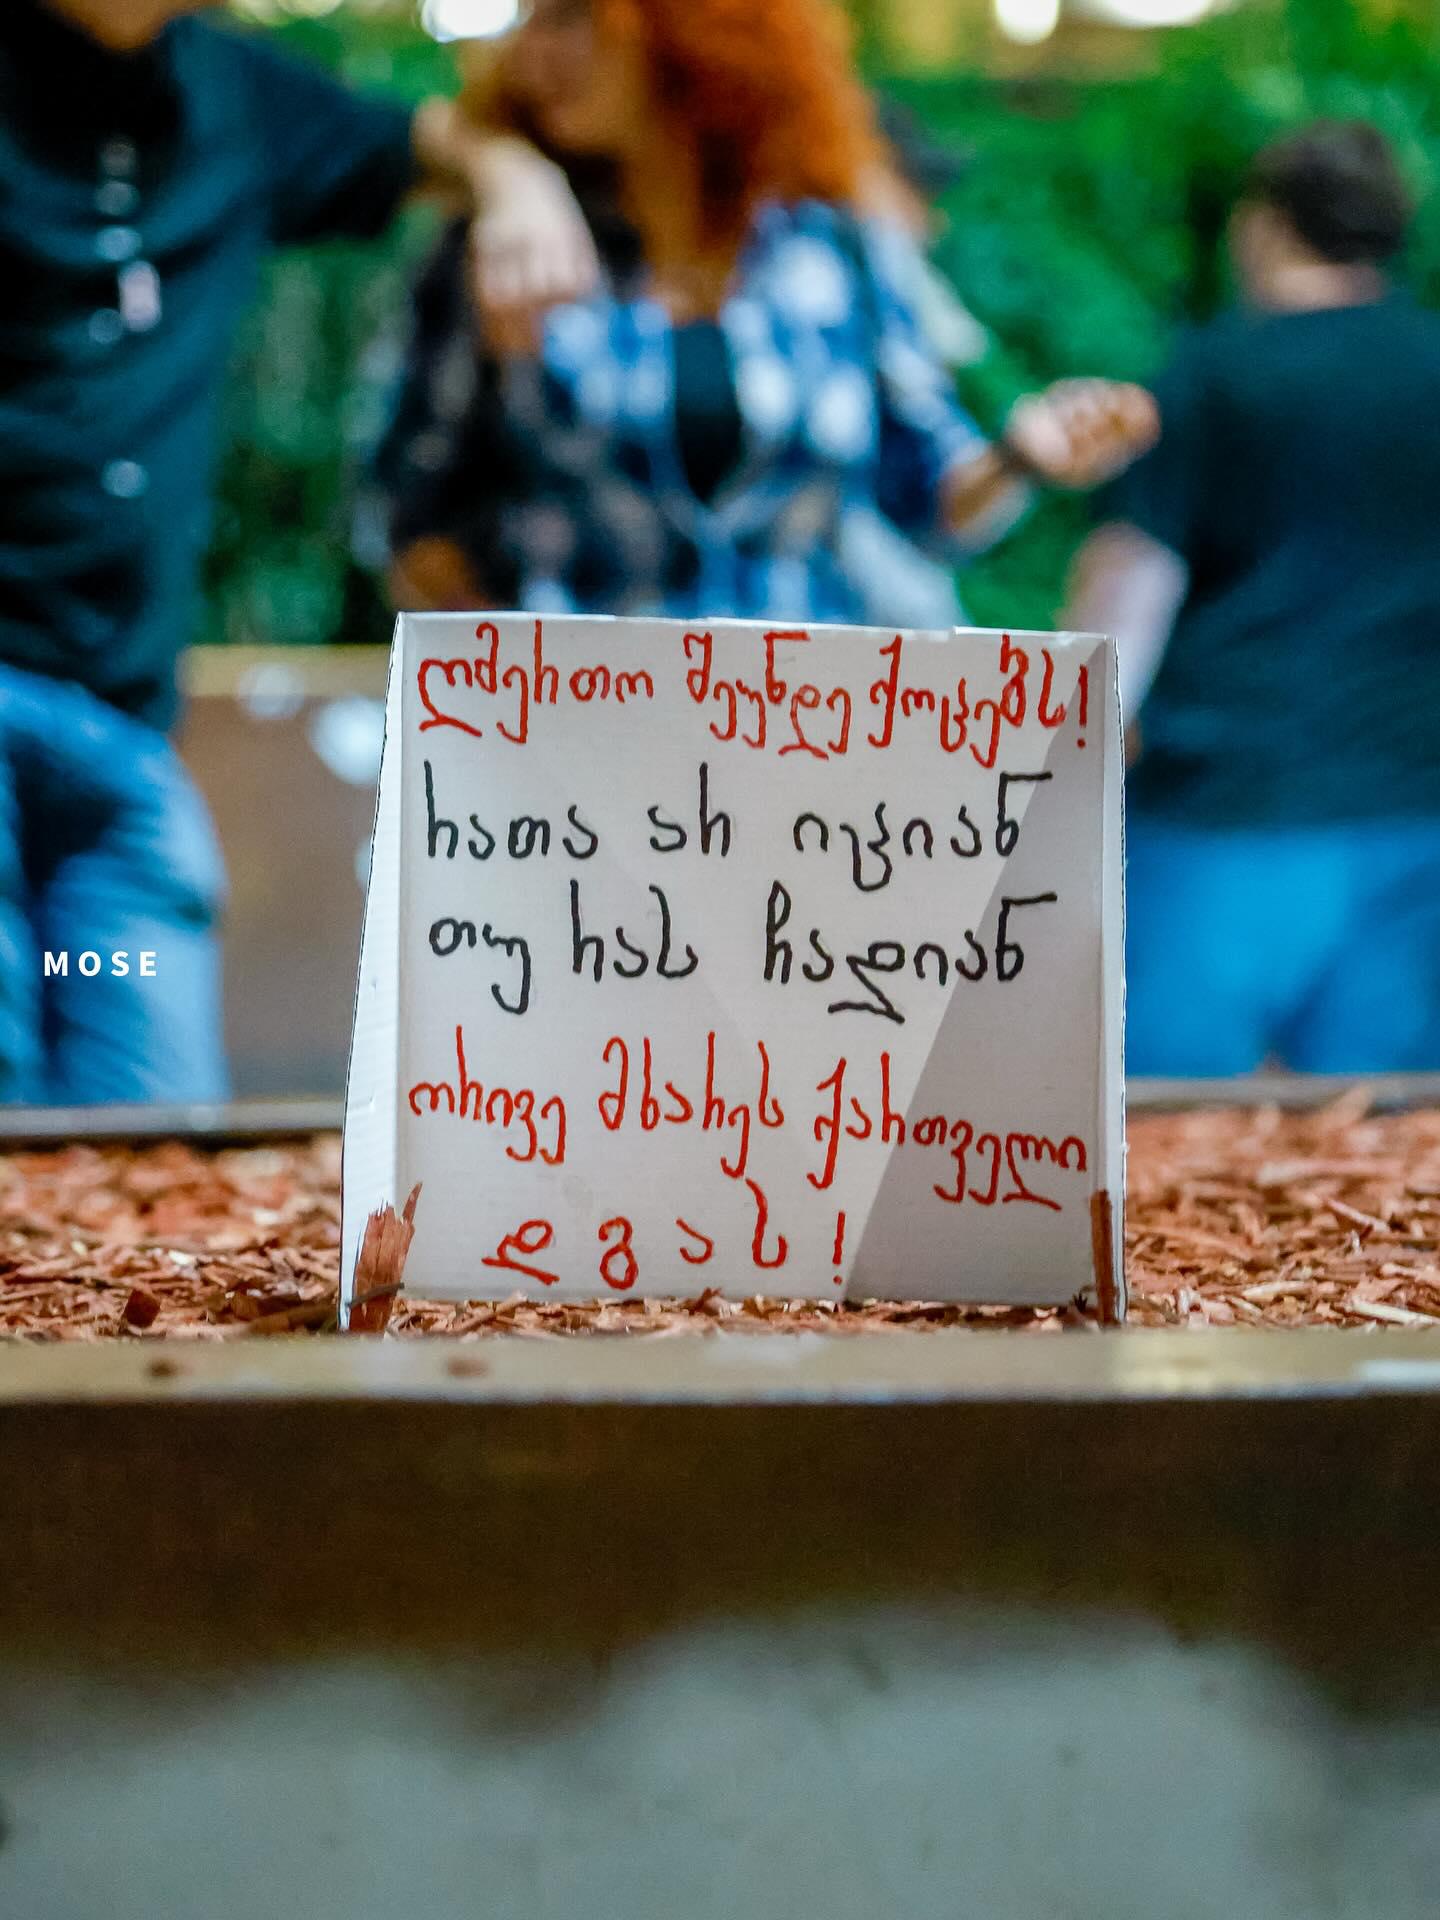 ღმერთო შეუნდე ქოცებს!
რათა არ იციან
თუ რას ჩადიან
MOSE
ორივე მხარეს ქართველი
დგას!